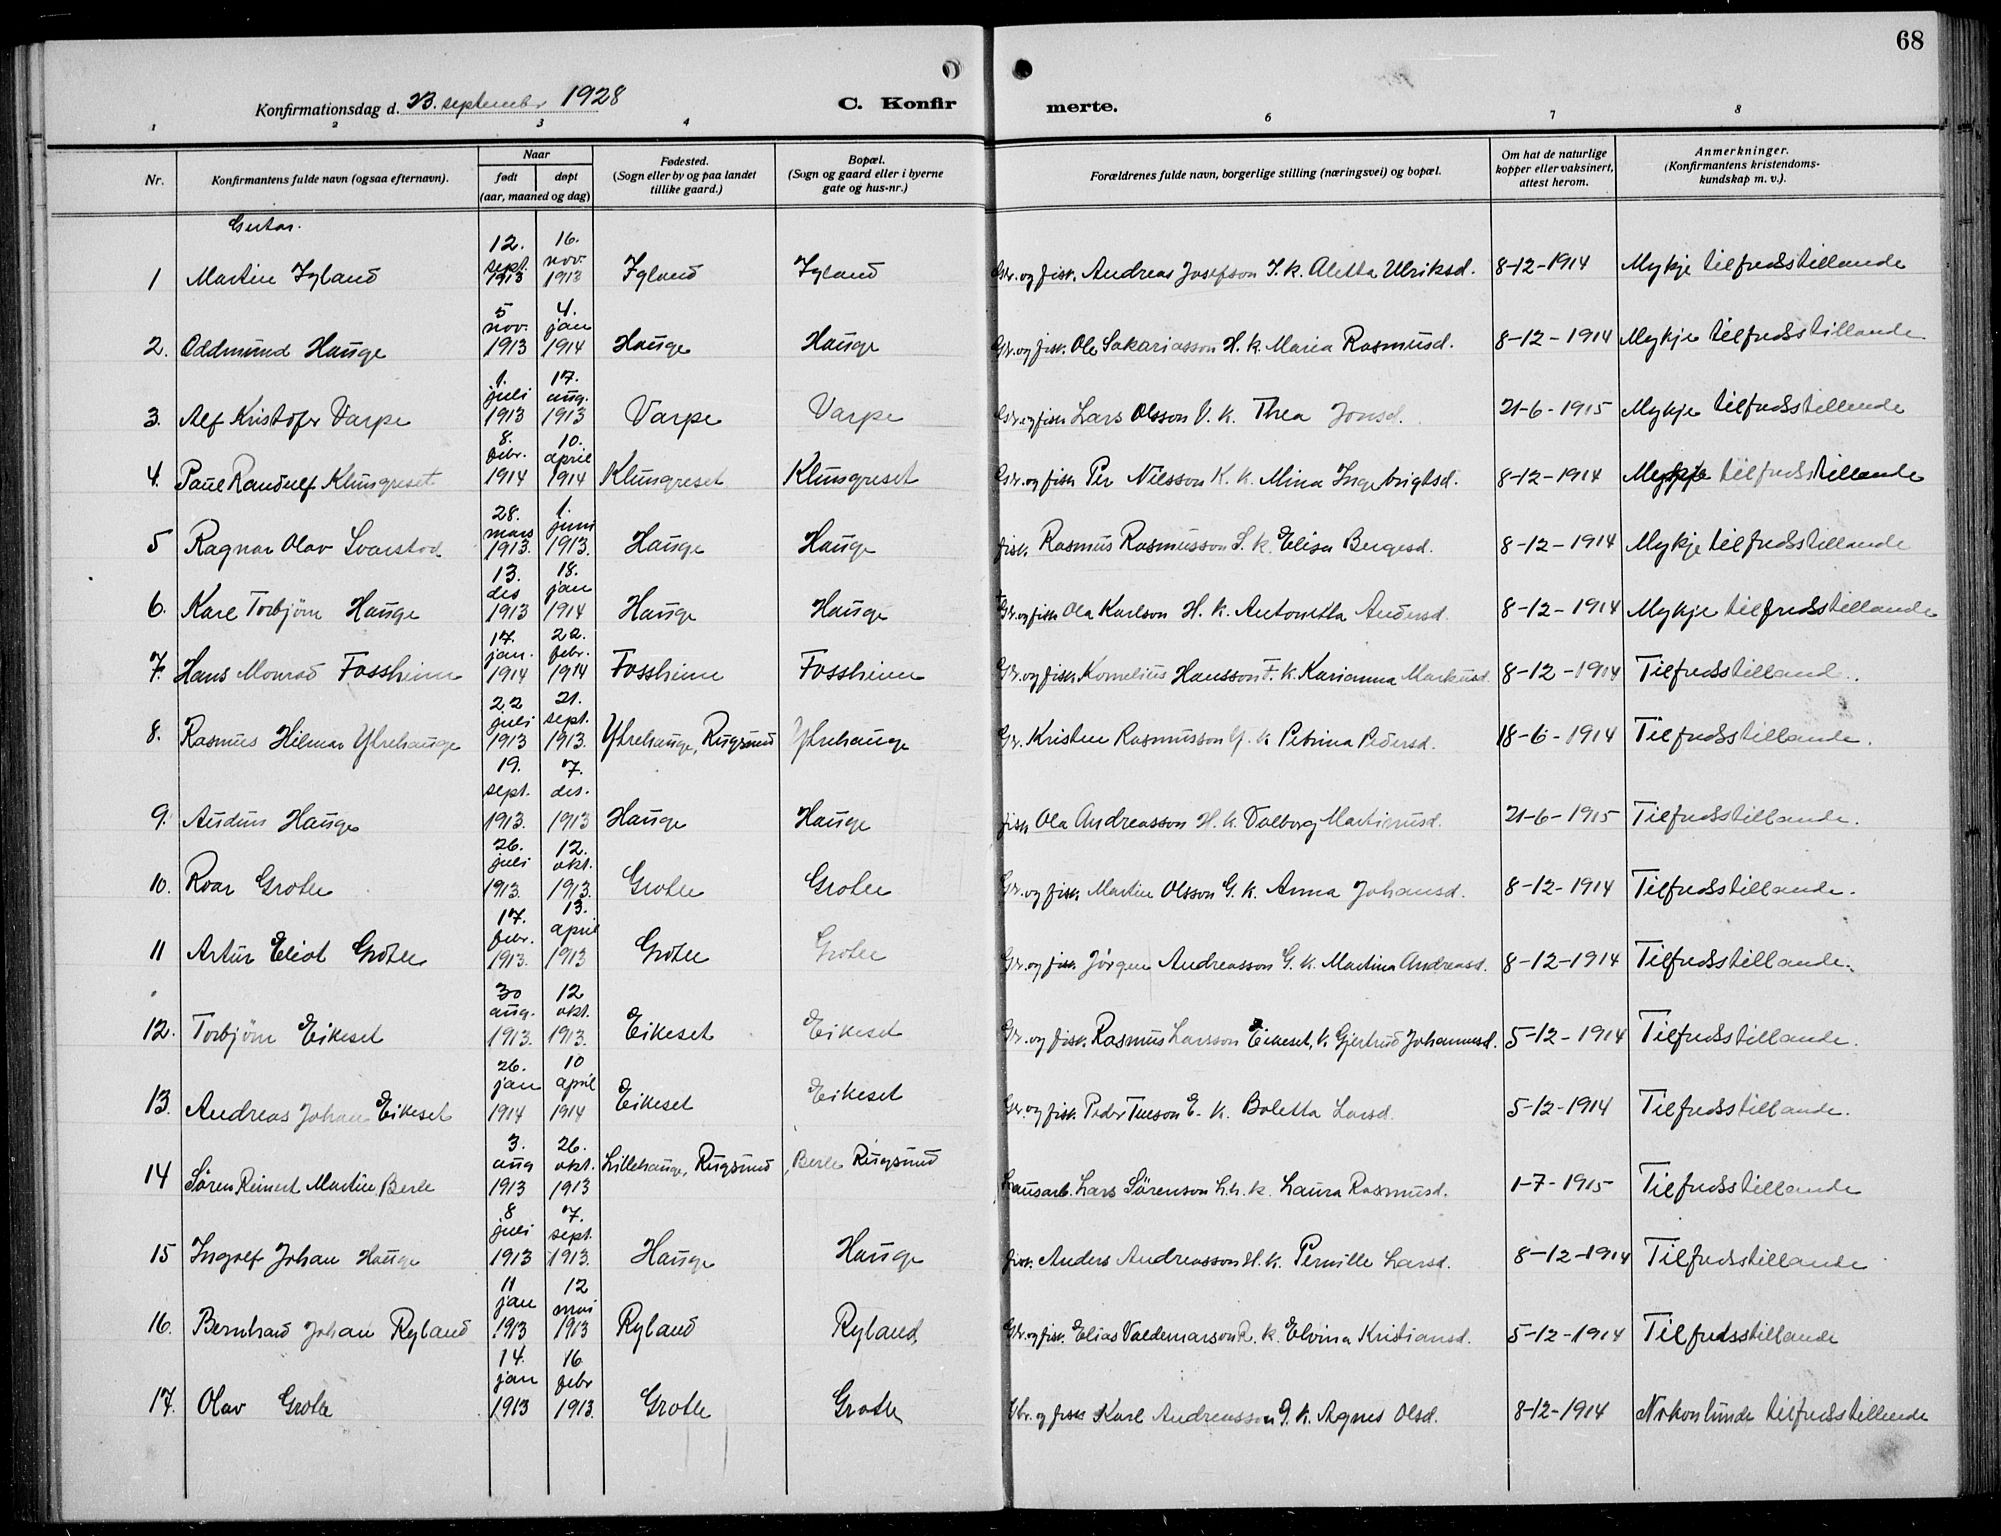 68
Konfirmationsdag d. 23. september 1928 C. Konfir merte.
1 2 3 4 6 7 8
Nr. Konfirmantens fulde navn (ogsaa efternavn). Naar født døpt (aar, maaned og dag) Fødested. (Sogn eller by og paa landet tillike gaard.) Bopæl. (Sogn og gaard eller i byerne gate og hus-nr.) Forældrenes fulde navn, borgerlige stilling (næringsvei) og bopæl. Om hat de naturlige kopper eller vaksinert, attest herom. Anmerkninger. (Konfirmantens kristendoms-kundskap m. v.).
Gutar.
1 Martin Igland 12. sept. 1913 16. nov. 1913 Igland Igland Gbr. og fisk. Andreas Josefson I. k. Aletta Ulriksd. 8-12-1914 Mykje tilfredsstillande
2. Oddmund Hauge 5 nov. 1913 4. jan 1914 Hauge Hauge Gbr. og fisk. Ole Sakariasson H. k. Maria Rasmusd. 8-12-1914 Mykje tilfredsstillande
3. Alf Kristofer Varpe 1. juli 1913 17. aug. 1913 Varpe Varpe Gbr. og fisk. Lars Olsson V. k. Thea Jonsd. 21-6-1915 Mykje tilfredsstillende
4. Paul Randulf Klungreset 8. febr. 1914 10. april 1914 Klungreset Klungreset Gbr. og fisk. Per Nilsson K. k. Mina Ingebrigtsd. 8-12-1914 Mykje tilfredsstillande
5 Ragnar Olav Svarstad 28. mars 1913. 1. juni 1913. Hauge Hauge fisk. Rasmus Rasmusson S. k. Elisa Bergesd. 8-12-1914 Mykje tilfredsstillande
6. Kare Torbjørn Hauge 13. des 1913 18. jan 1914 Hauge Hauge Gbr. og fisk. Ola Karlson H. k. Antonetta Andersd. 8-12-1914 Mykje tilfredsstillande
7. Hans Monrad Fossheim 17. jan. 1914 22. febr. 1914 Fossheim Fossheim Gbr. og fisk. Kornelius Hansson F. k. Karianna Markusd. 8-12-1914 Tilfredsstilland.
8. Rasmus Hilmar Ytrehauge 22 juli 1913 21. sept. 1913. Ytrehauge, Rugsund Ytrehauge Gbr. Kristen Rasmusson Y. k. Petrina Pedersd. 18-6-1914 Tilfredsstillande.
9. Audun Hauge 19. sept. 1913. 7. des. 1913 Hauge Hauge fisk Ola Andreasson H. k. Valborg Martinusd. 21-6-1915 Tilfredsstillande.
10. Roar Grotle 26. juli 1913. 12. okt. 1913. Grotle Grotle Gbr. og fisk. Martin Olsson G. k. Anna Johansd. 8-12-1914 Tilfredsstillande.
11 Artur Eliot Grotle 17. febr. 1913. 13. april 1913 Grotle Grotle Gbr. og fisk. Jörgen Andreasson G. k. Martina Andreasd. 8-12-1914 Tilfredsstillande.
12. Torbjørn Eikeset 30 aug. 1913. 12 okt. 1913. Eikeset Eikeset Gbr. og fisk. Rasmus Larsson Eikeset, k. Gjertrud Johannesd. 5-12-1914 Tilfredsstillande.
13. Andreas Johan Eikeset 26. jan 1914 10 april 1914 Eikeset Eikeset Gbr. og fisk. Peder E. k. Boletta Larsd. 5-12-1914 Tilfredsstillande.
14 Søren Reinert Martin Berle 3. aug 1913 26. okt. 1913 Lillehauge, Rugsund Berle Rugsund Lausarb. Lars Sörenson L.h. k. Laura Rasmusd. 1-7-1915 Tilfredsstillande
15 Ingolf Johan Hauge 8 juli 1913 7. sept. 1913. Hauge Hauge fisk. Anders Andreasson H. k. Pernille Larsd. 8-12-1914 Tilfredsstillande
16. Bernhard Johan Ryland 11 jan 1913 12 mai 1913 Ryland Ryland Gbr. og fisk. Elias Valdemarson R. k. Elvina Kristiansd. 5-12-1914 Tilfredsstillande
17. Olav Grotle 14. jan 1913 16 febr 1913. Grotle Grotle Gbr. og fisk. Karl Andreasson G. k. Agnes Olsd. 8-12-1914 Nokonlunde tilfredsstillende